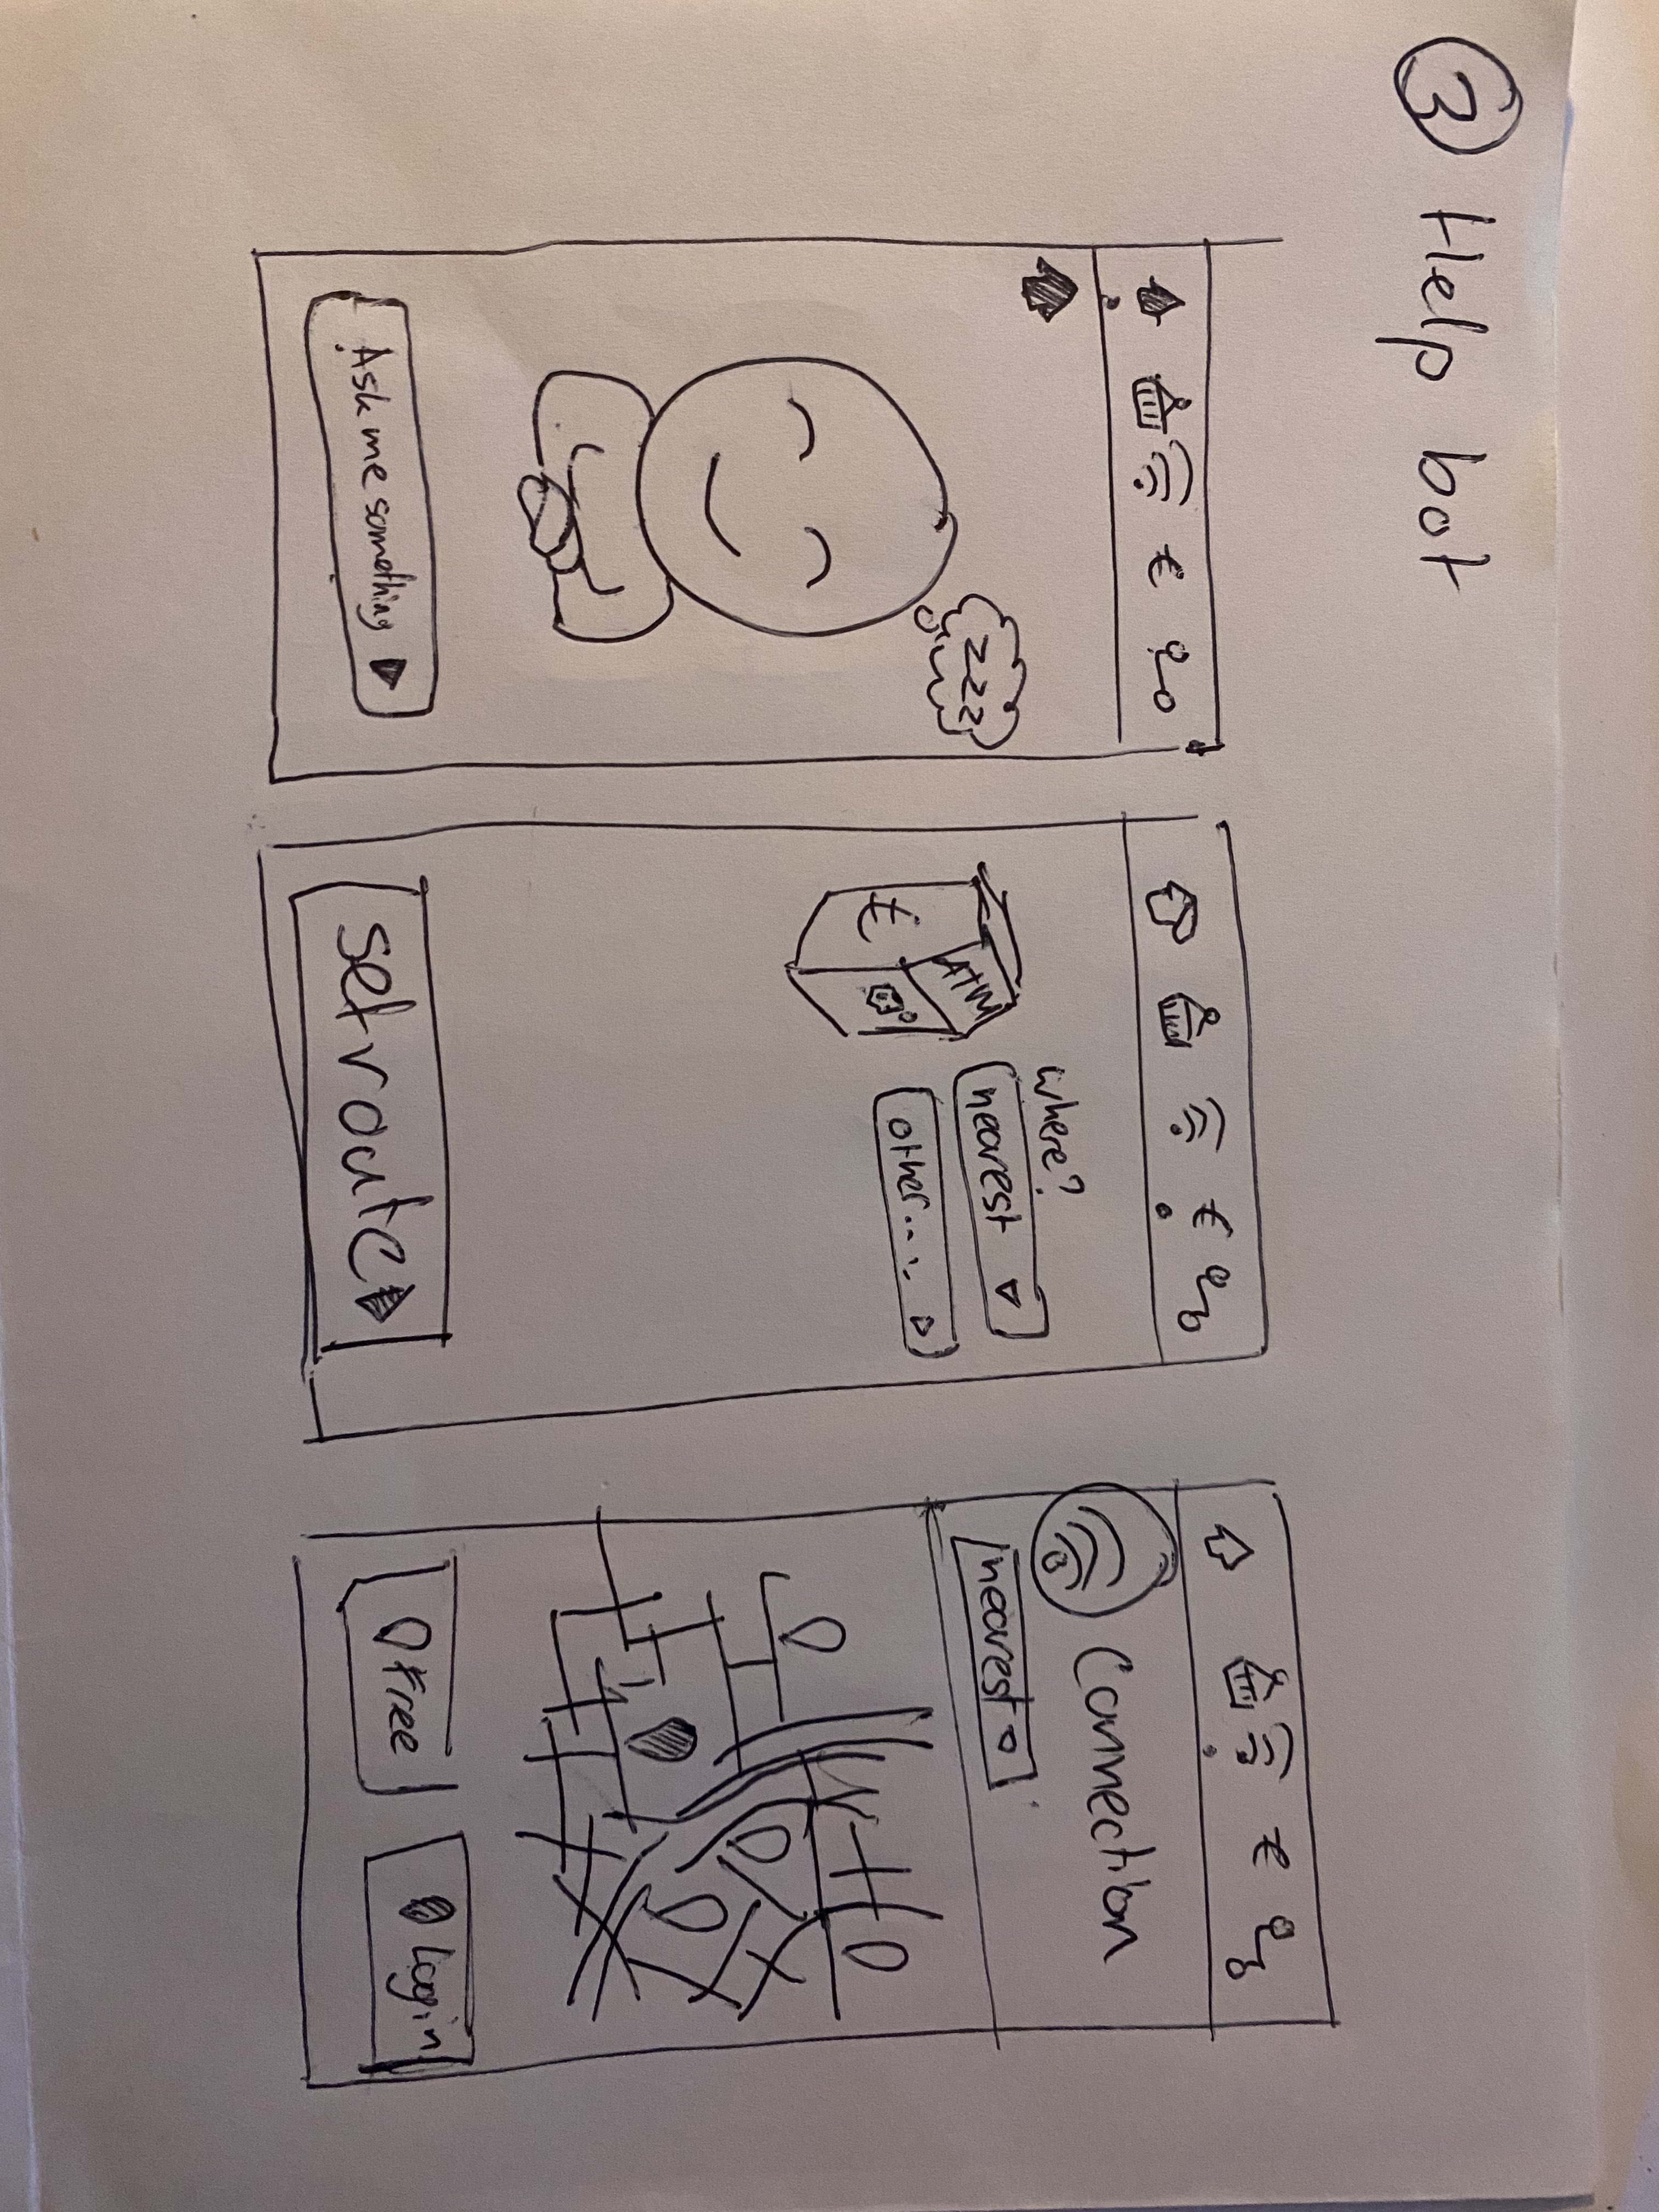 Help bot
zzz
Ask me something
where?
ATM
€
nearest
other...
set route
Connection
nearest
Free
Login